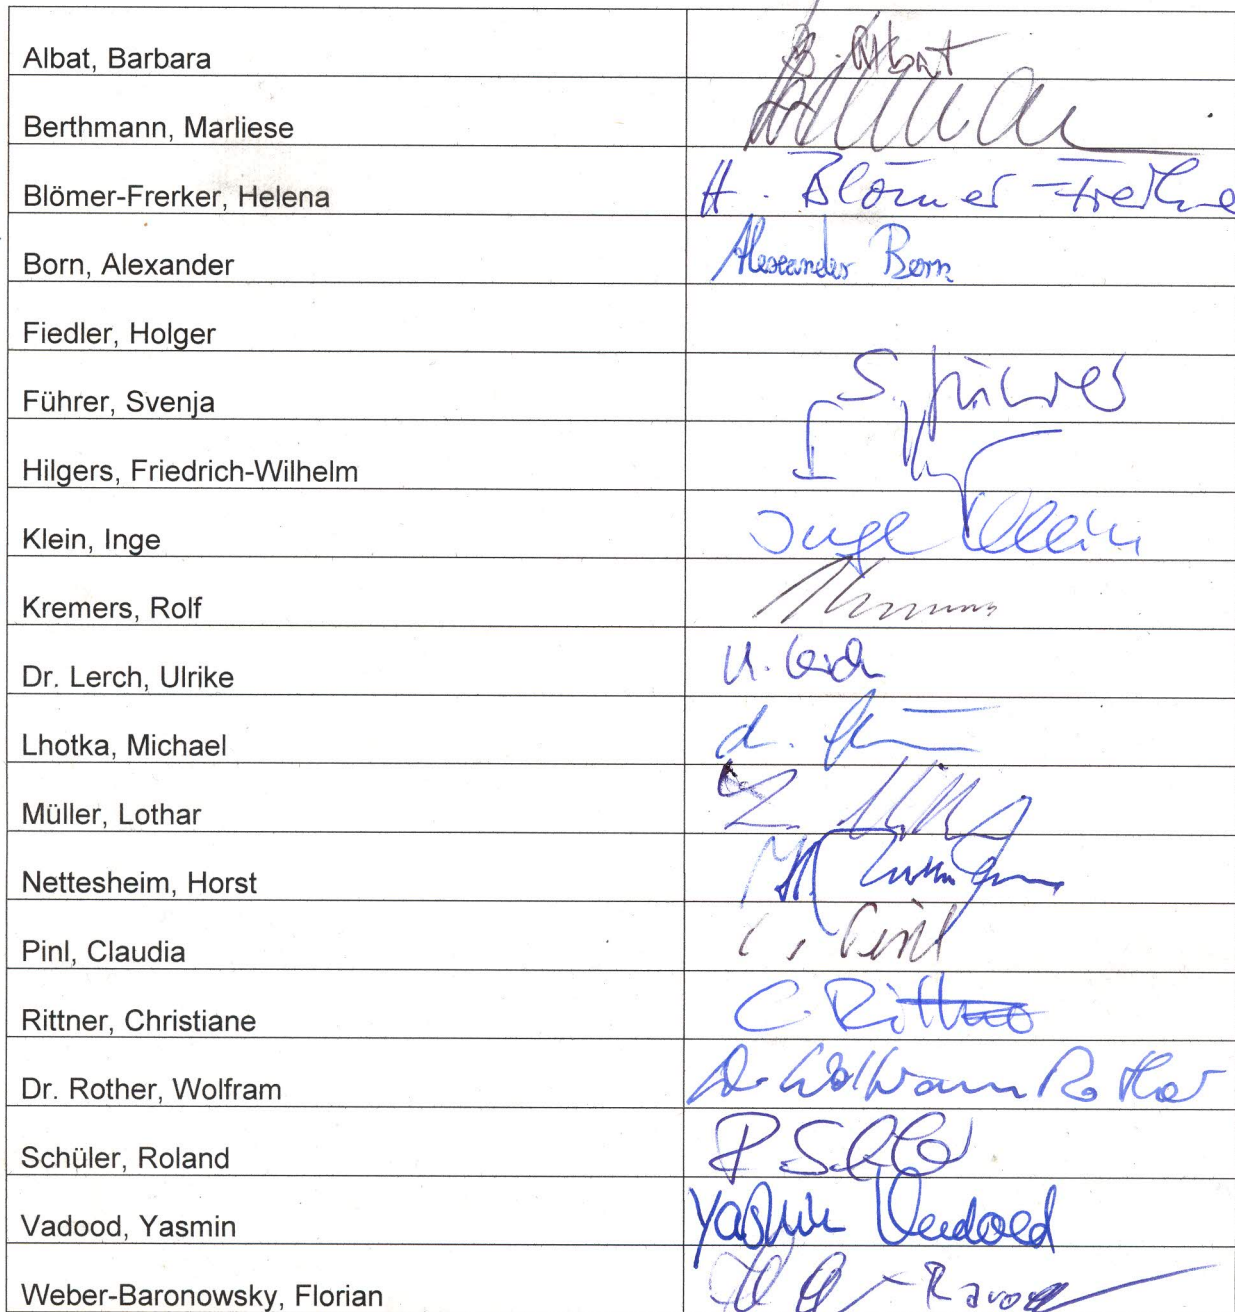 Albat, Barbara B. Albat
Berthmann, Marliese
Blömer-Frerker, Helena H. Blömer-Frerke
Born, Alexander Alexander Born
Fiedler, Holger
Führer, Svenja S. Führer
Hilgers, Friedrich-Wilhelm
Klein, Inge Inge Klein
Kremers, Rolf
Dr. Lerch, Ulrike U. Lerch
Lhotka, Michael
Müller, Lothar L.
Nettesheim, Horst
Pinl, Claudia C. Pinl
Rittner, Christiane C. Rittner
Dr. Rother, Wolfram Dr. Wolfram Rother
Schüler, Roland R
Vadood, Yasmin Yasmin Vadood
Weber-Baronowsky, Florian